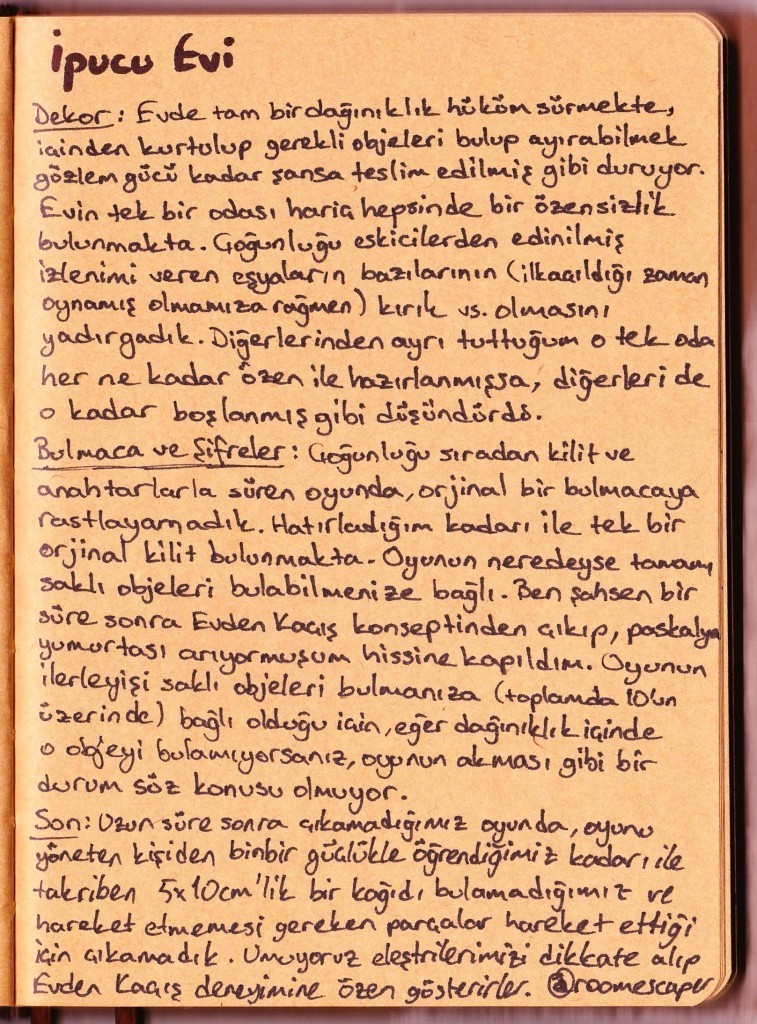 İpucu Evi
Dekor: Evde tam bir dağınıklık hüküm sürmekte,
içinden kurtulup gerekli objeleri bulup ayırabilmek
gözlem gücü kadar şansa teslim edilmiş gibi duruyor.
Evin tek bir odası hariç hepsinde bir özensizlik
bulunmakta. Çoğunluğu eskicilerden edinilmiş
izlenimi veren eşyaların bazılarının (ilk açıldığı zaman
oynamış olmamıza rağmen) kırık vs. olmasını
yadırgadık. Diğerlerinden ayrı tuttuğum o tek oda
her ne kadar özen ile hazırlanmışsa, diğerleri de
o kadar boşlanmış gibi düşündürdü.
Bulmaca ve Şifreler: Çoğunluğu sıradan kilit ve
anahtarlarla süren oyunda, orjinal bir bulmacaya
rastlayamadık. Hatırladığım kadarı ile tek bir
orjinal kilit bulunmakta. Oyunun neredeyse tamamı
saklı objeleri bulabilmenize bağlı. Ben şahsen bir
süre sonra Evden Kaçış konseptinden çıkıp, paskalya
yumurtası arıyormuşum hissine kapıldım. Oyunun
ilerleyişi saklı objeleri bulmanıza (toplamda 10'un
üzerinde) bağlı olduğu için, eğer dağınıklık içinde
o objeyi bulamıyorsanız, oyunun akması gibi bir
durum söz konusu olmuyor.
Son: Uzun süre sonra çıkamadığımız oyunda, oyunu
yöneten kişiden binbir güçlükle öğrendiğimiz kadarı ile
takriben 5x10cm'lik bir kağıdı bulamadığımız ve
hareket etmemesi gereken parçalar hareket ettiği
için çıkamadık. Umuyoruz eleştrilerimizi dikkate alıp
Evden Kaçış deneyimine özen gösterirler. @roomescaper